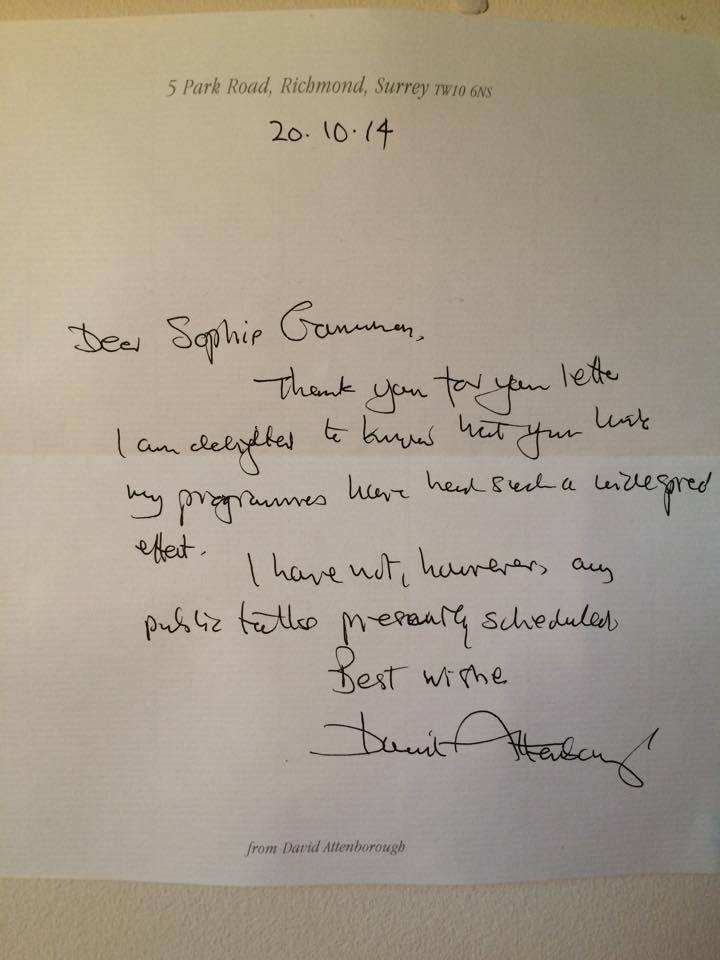 5 Park Road, Richmond, Surrey TW10 6NS
20.10.14
Dear Sophie
Thank you for your letter
I am delighted to know that your
my programmes have had such a widespread
effect.
I have not, however, any
public talks presently scheduled
Best wishes
David Attenborough
from David Attenborough